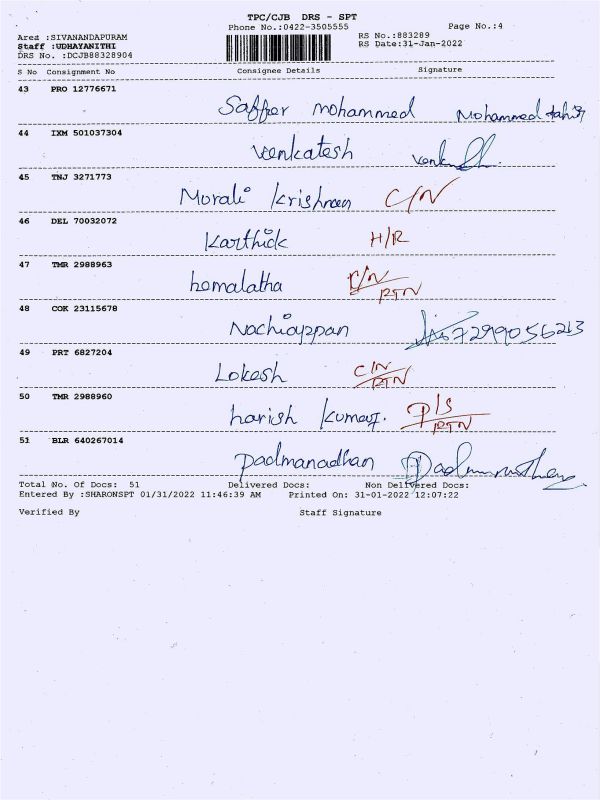 TPC/CJB DRS - SPT
Phone No.:0422-3505555 Page No.:4
Area :SIVANANDAPURAM RS No.:883289
Staff :UDHAYANITHI RS Date:31-Jan-2022
DRS No. :DCJB88328904
S No Consignment No Consignee Details Signature
43 PRO 12776671
Saffer mohammed Mohammed
44 IXM 501037304
venkatesh
45 TNJ 3271773
Morali Krishnan C/N
46 DEL 70032072
Karthick H/R
47 TMR 2988963
hemalatha RTN
48 COK 23115678
Nachiappan 7299056213
49 PRT 6827204
Lokesh C/N RTN
50 TMR 2988960
harish kumar. P/S RTN
51 BLR 640267014
padmanadhan
Total No. Of Docs: 51 Delivered Docs: Non Delivered Docs:
Entered By :SHARONSPT 01/31/2022 11:46:39 AM Printed On: 31-01-2022 12:07:22
Verified By Staff Signature